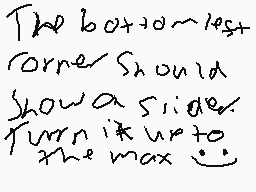 The bottom left
corner should
show a slider.
Turn it up to
the max :)